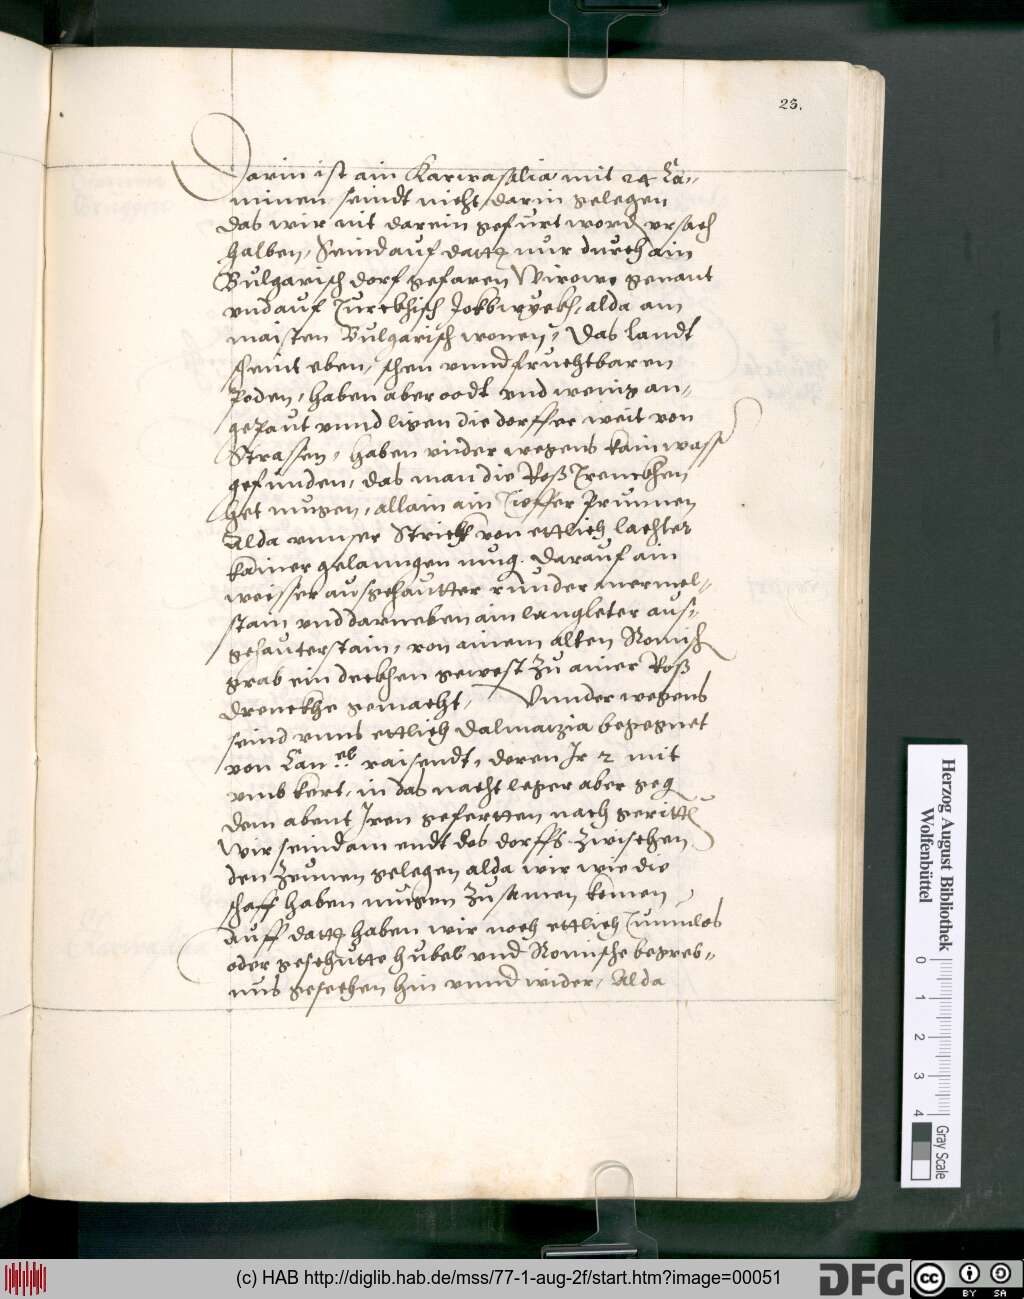 25.
Darin ist ain Karwasalia mit 24 Ca„
minen seindt nicht darin gelegen
das wir nit darein gefürt word ursach
halben, Seind auf datt nur durch ain
Bulgarisch dorf gefaren Wirowe genant
und auf Turckhisch alda am
maisten Bulgarisch wonen, Das landt
scheint eben, schen unnd fruchtbaren
Poden, haben aber oodt und wenig an„
gepaut unnd ligen die dorffer weit von
Strassen, haben under wegens kain wasser
gefunden, das man die Roß Trenckhen
het mugen, allain ain Tieffer Prunnen
Alda unnser Strickh von ettlich lachter
kainer gelanngen mug. Darauf ain
weisser aufgehautter runder mermel„
stain und darneben ain langleter aus„
gehauter stain, von ainem alten Romisch
grab ein deckhen gewest zu ainer Roß
drenckhe gemacht, Unnder wegens
seind unns ettlich Dalmatzia begegnet
von raisendt, deren Ir 2 mit
umb kert, in das nacht leger aber geg
dem abent Iren geferrten nach geritt
Wir seind am endt des dorffs zwischen
den Zeunen gelegen alda wir wie die
schaff haben mugen zusamen komen
Auff datt haben wir noch ettlich Tumulos
oder geschutte hubel und Romische begreb„
nus gesechen hin unnd wider, Alda
Herzog August Bibliothek
Wolfenbüttel
0 1 2 3 4
Gray Scale
(c) HAB http://diglib.hab.de/mss/77-1-aug-2f/start.htm?image=00051
DFG
cc BY SA